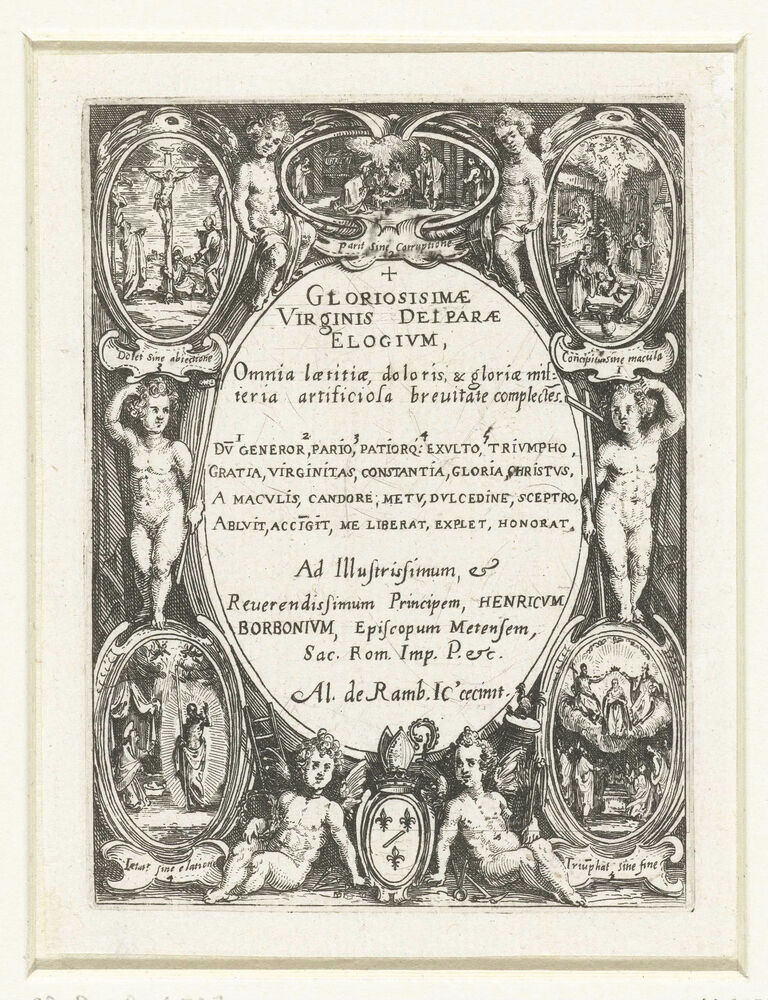 Parit sine Corruptione
2
Dolet sine abiectione
3
Concipitur sine macula
1
+
GLORIOSISIMÆ
VIRGINIS DEIPARÆ
ELOGIVM,
Omnia lætitiæ, doloris, & gloriæ mis-
teria artificiosa breuitate complectēs.
1 2 3 4 5
DV̄ GENEROR, PARIO, PATIORQ: EXVLTO, TRIVMPHO,
GRATIA, VIRGINITAS, CONSTANTIA, GLORIA, CHRISTVS,
A MACVLIS, CANDORE, METV, DVLCEDINE, SCEPTRO,
ABLVIT, ACCĪGIT, ME LIBERAT, EXPLET, HONORAT.
Ad Illustrissimum, &
Reuerendissimum Principem, HENRICVM
BORBONIVM, Episcopum Metensem,
Sac. Rom. Imp. P. etc.
Al. de Ramb. IC' cecinit.
Lætat' sine elatione
4
Triūphat sine fine
5